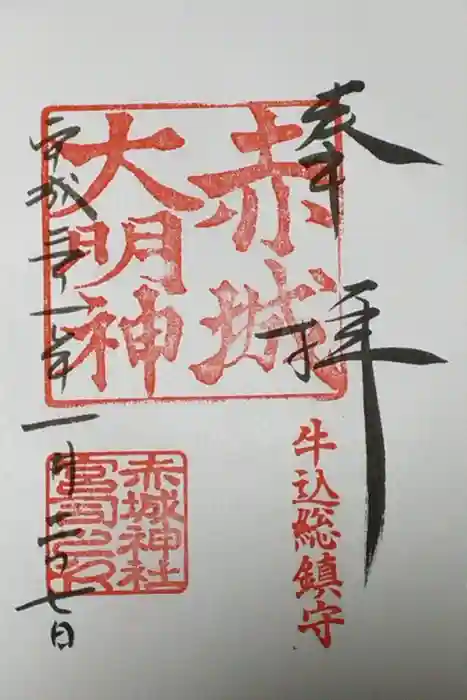 奉拝
赤城
大明神
牛込総鎮守
平成三十一年一月二十七日
赤城神社
宮司之印